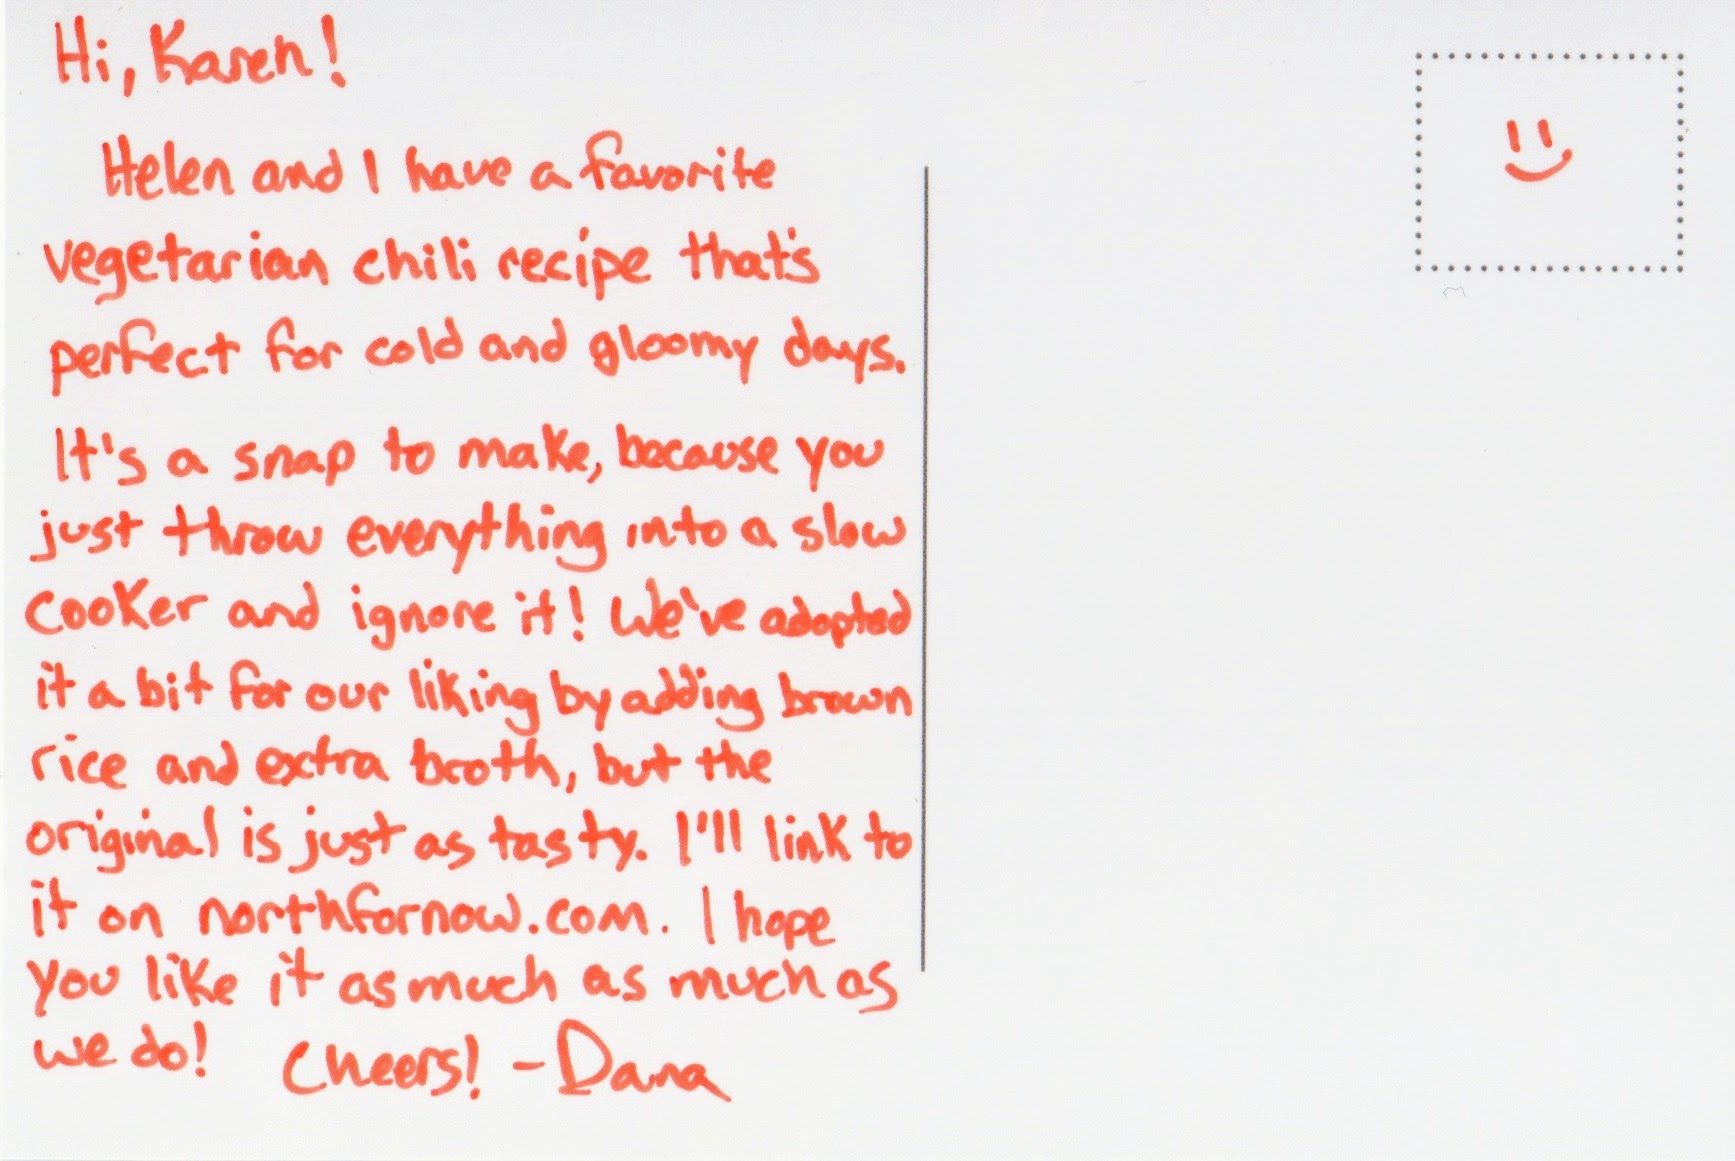 Hi, Karen!
Helen and I have a favorite
vegetarian chili recipe that's
perfect for cold and gloomy days.
It's a snap to make, because you
just throw everything into a slow
cooker and ignore it! We've adopted
it a bit for our liking by adding brown
rice and extra broth, but the
original is just as tasty. I'll link to
it on northfornow.com. I hope
you like it as much as much as
we do! Cheers! -Dana